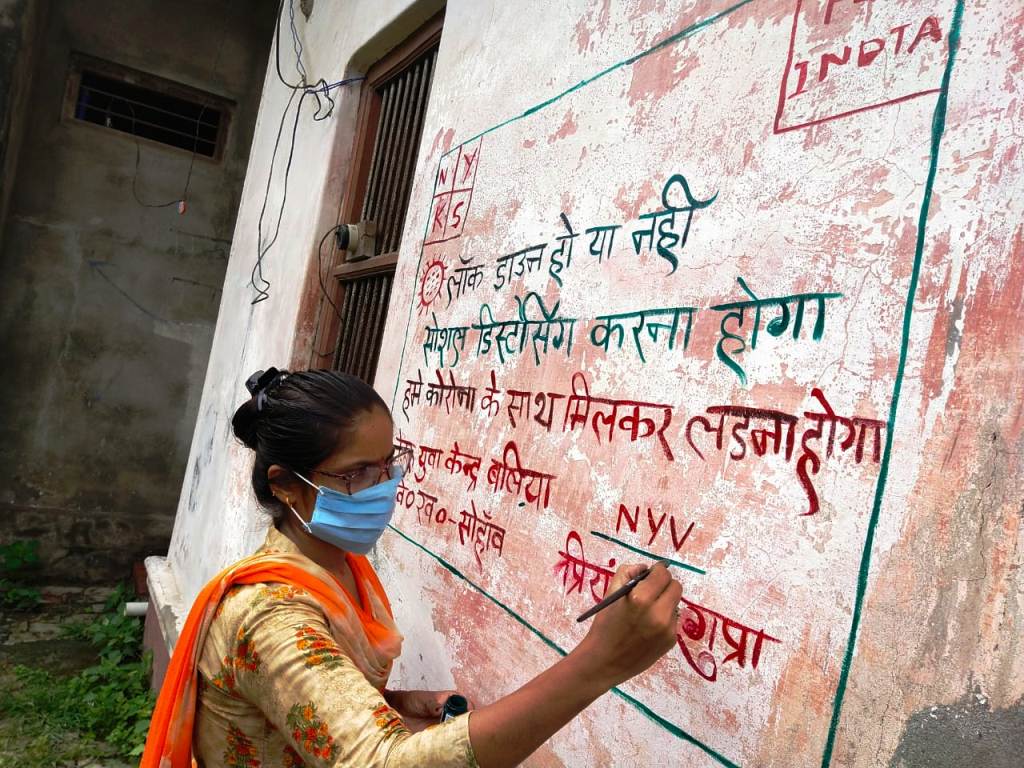 INDIA
N Y
K S
लॉक डाउन हो या नही
सोशल डिस्टेसिंग करना होगा
हमे कोरोना के साथ मिलकर लडना होगा
युवा केन्द्र बलिया
वि०ख०-सोहाँव
NYV
प्रियं